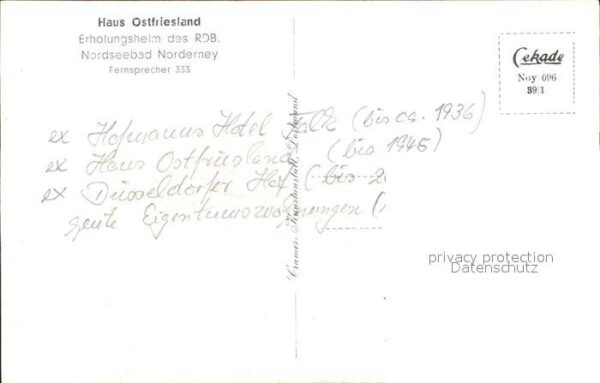 Haus Ostfriesland
Erholungsheim des RDB.
Nordseebad Norderney
Fernsprecher 333
Cekade
Noy 096
39/1
ex Hofmanns Hotel Falk (bis ca. 1936)
ex Haus Ostfriesland (bis 1945)
ex Düsseldorfer Hof (bis
Eigentumswohnungen (
Cramers Kunstanstalt, Dortmund
privacy protection
Datenschutz